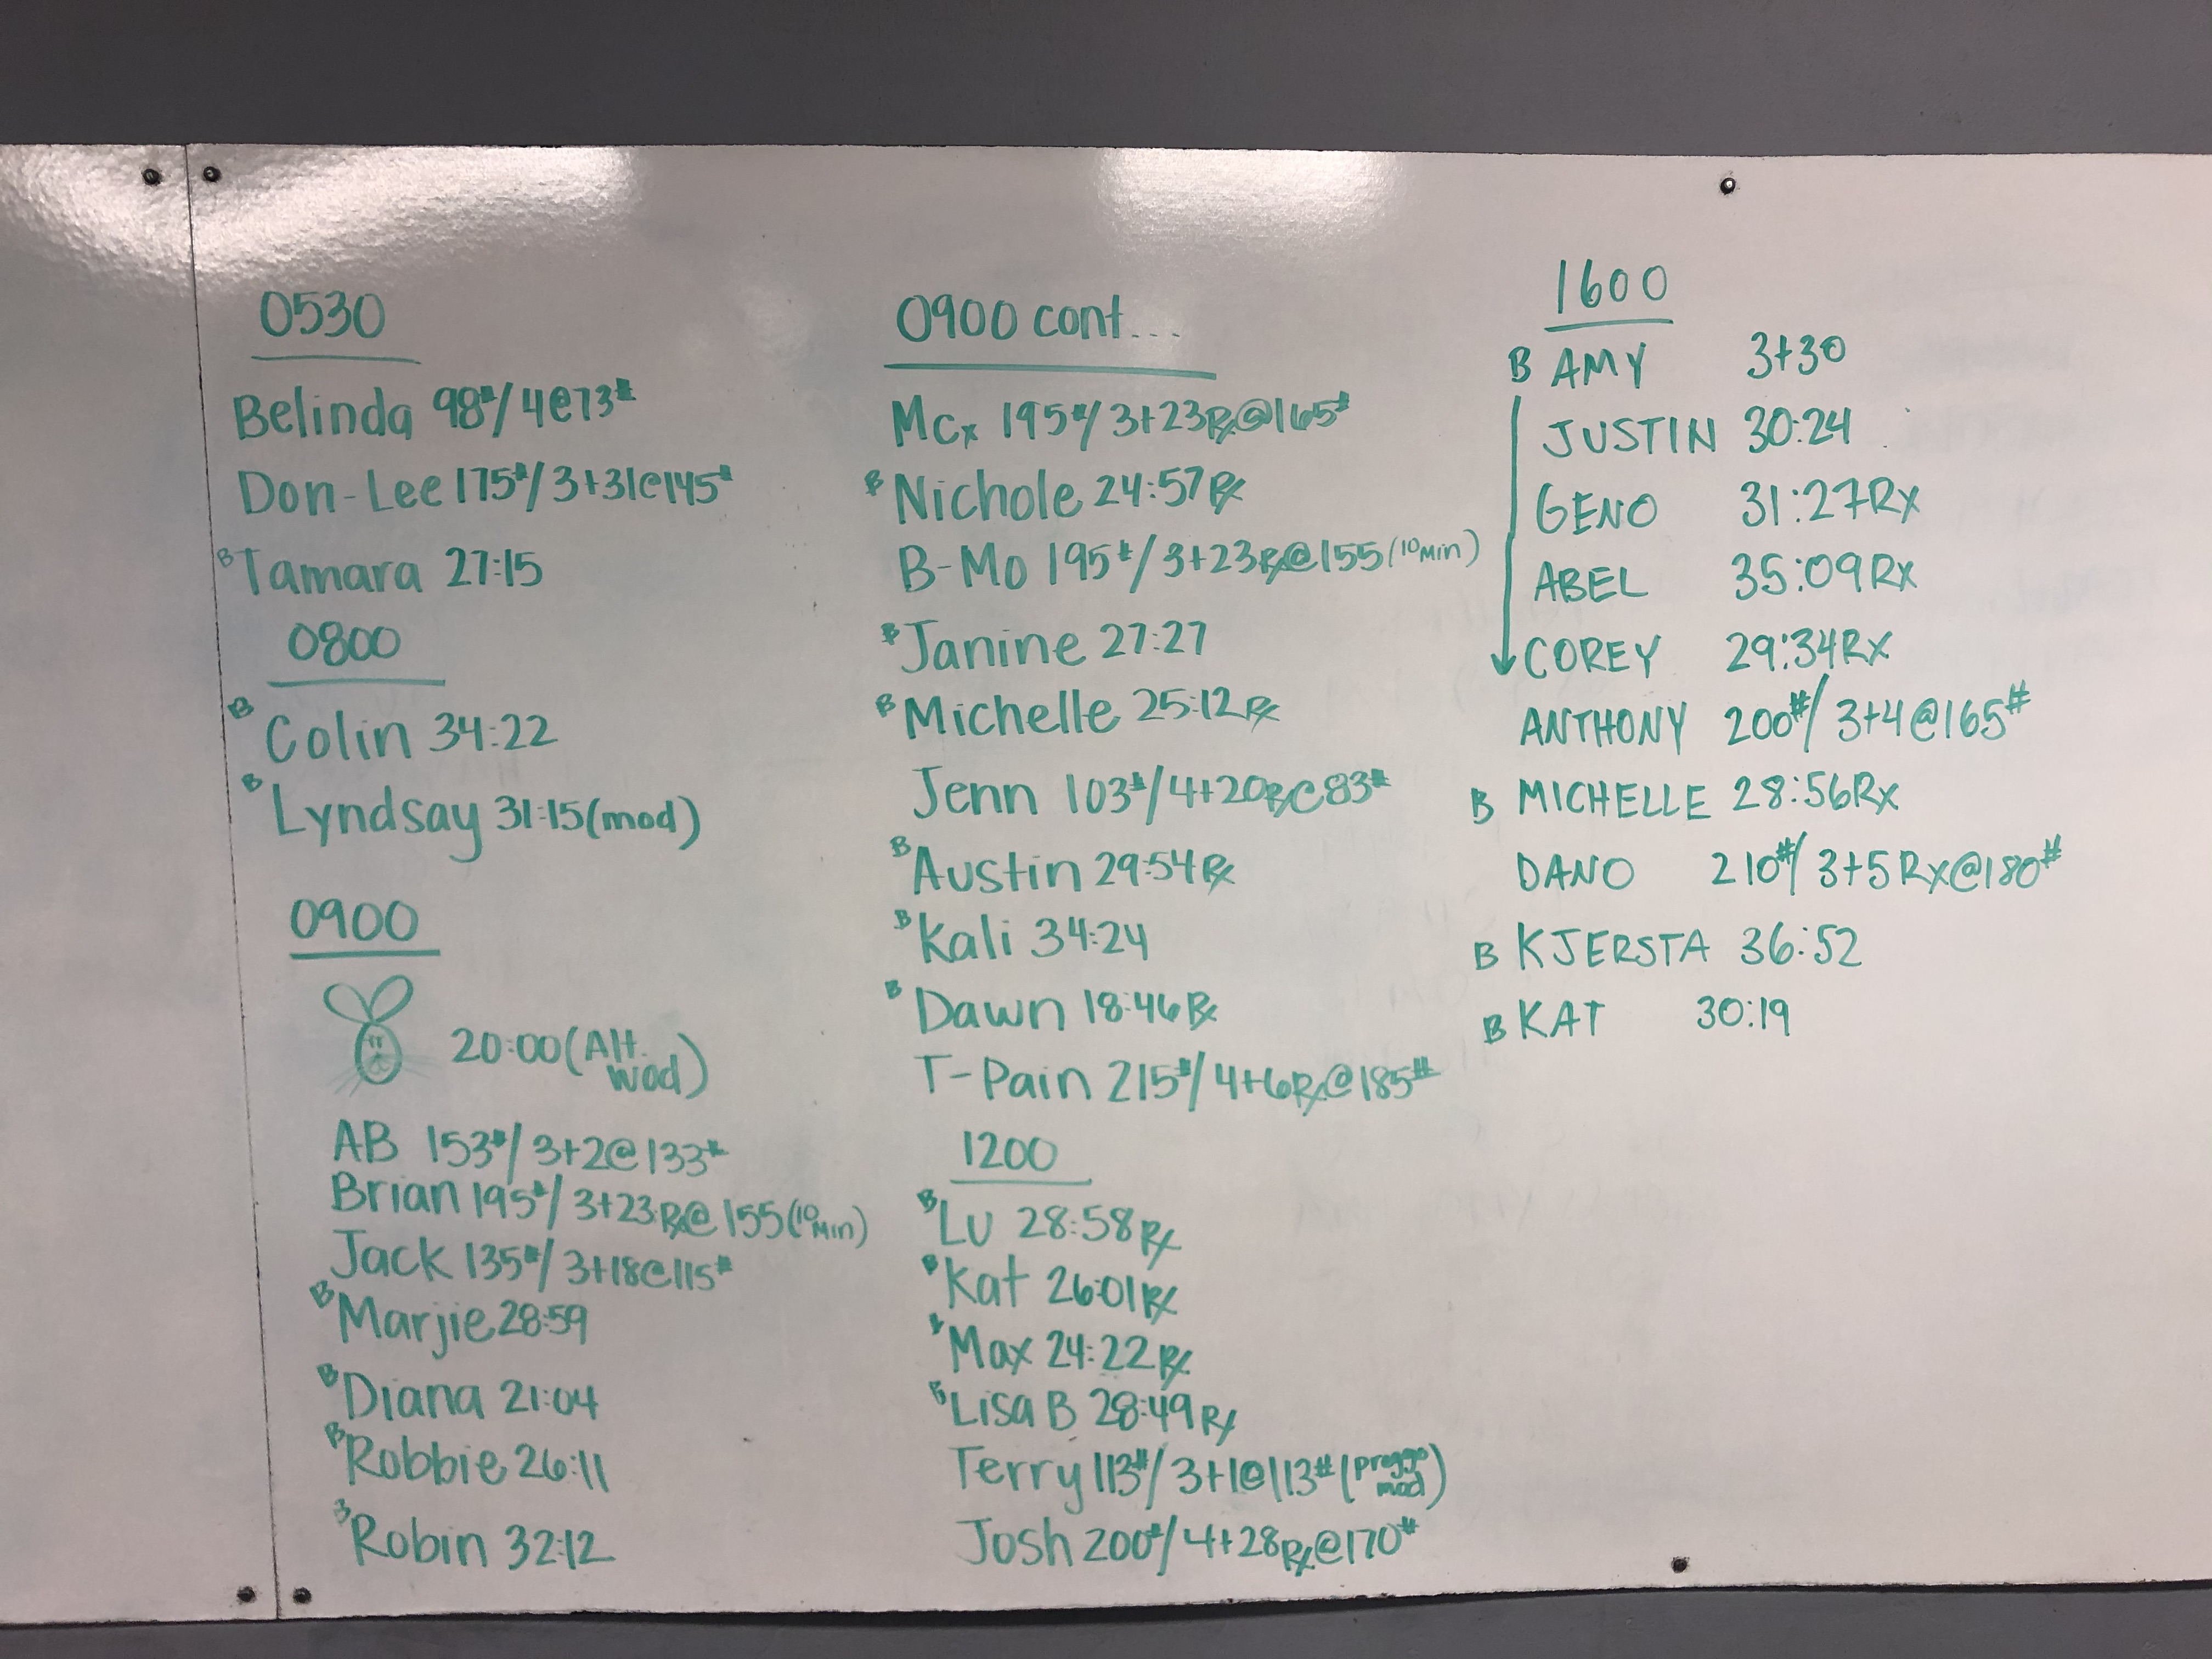 0530
Belinda 98#/4@73#
Don-Lee 175#/3+31@145#
B Tamara 27:15
0800
B Colin 34:22
B Lyndsay 31:15 (mod)
0900
20:00 (Alt.
Wod)
AB 153#/3+2@133#
Brian 195#/3+23Rx@155 (10 Min)
Jack 135#/3+18@115#
B Marjie 28:59
B Diana 21:04
B Robbie 26:11
B Robin 32:12
0900 cont...
Mcx 195#/3+23Rx@165#
B Nichole 24:57Rx
B-Mo 195#/3+23Rx@155 (10 Min)
B Janine 27:27
B Michelle 25:12Rx
Jenn 103#/4+20Rx@83#
B Austin 29:54Rx
B Kali 34:24
B Dawn 18:46Rx
T-Pain 215#/4+6Rx@185#
1200
B Lu 28:58Rx
B Kat 26:01Rx
B Max 24:22Rx
B Lisa B 28:49Rx
Terry 113#/3+1@113# (preggo mod)
Josh 200#/4+28Rx@170#
1600
B AMY 3+30
JUSTIN 30:24
GENO 31:27Rx
ABEL 35:09Rx
COREY 29:34Rx
ANTHONY 200#/3+4@165#
B MICHELLE 28:56Rx
DANO 210#/3+5Rx@180#
B KJERSTA 36:52
B KAT 30:19